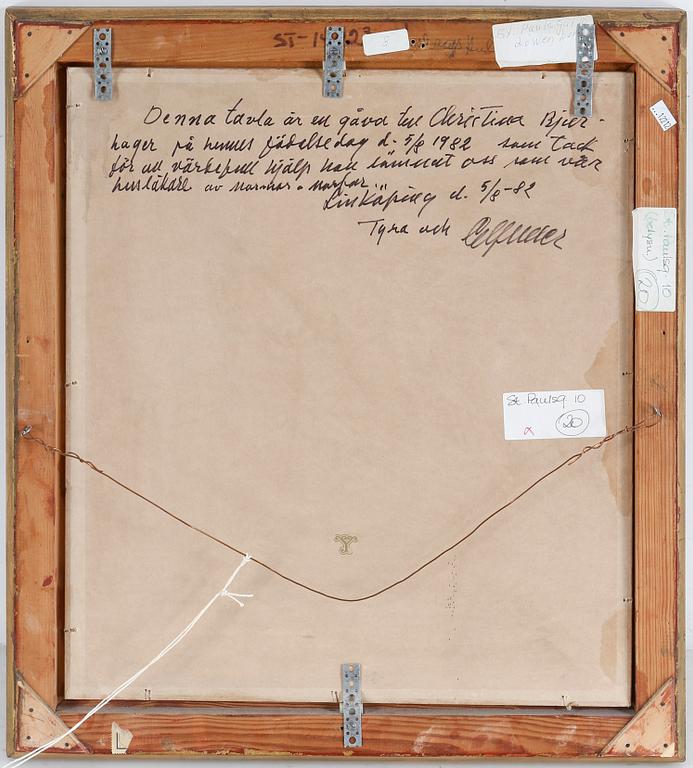 ST-1
8
St. Paulsg
Denna tavla är en gåva till Christina Bjur-
hager på hennes födelsedag d. 5/8 1982 som tack
för all värdefull hjälp hon lämnat oss som vår
husläkare av mormor o morfar.
Linköping d. 5/8-82
Tyra och
St. Paulsg 10
(belysn)
20
St. Paulsg 10
x 20
L